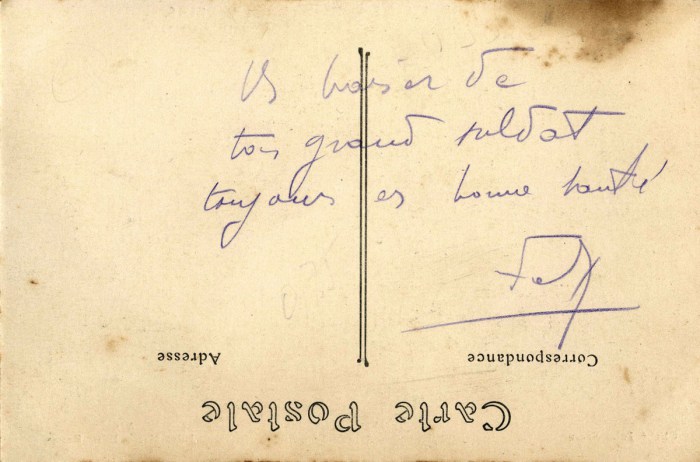 Un baiser de
ton grand soldat
toujours en bonne santé
Correspondance
Adresse
Carte Postale